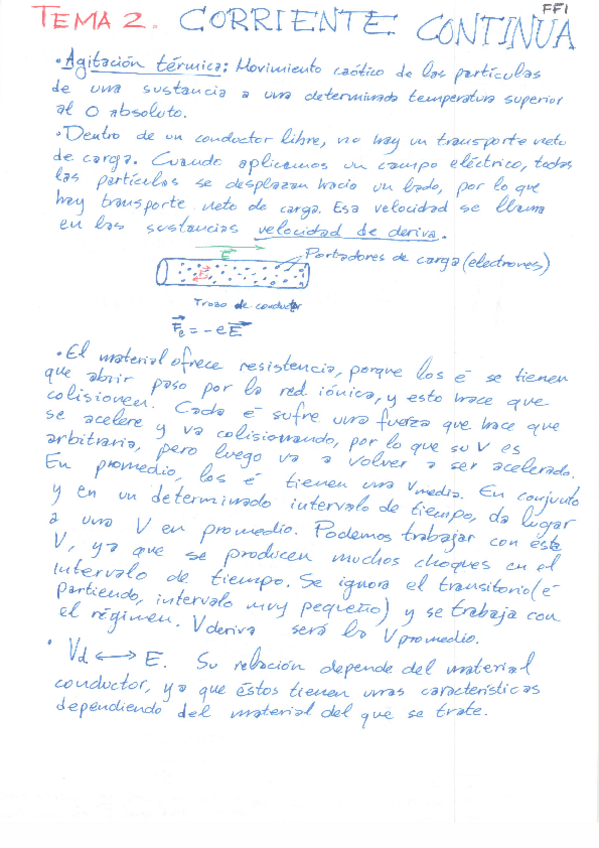 FF1
TEMA 2. CORRIENTE CONTINUA
• Agitación térmica: Movimiento caótico de las partículas
de una sustancia a una determinada temperatura superior
al 0 absoluto.
• Dentro de un conductor libre, no hay un transporte neto
de carga. Cuando aplicamos un campo eléctrico, todas
las partículas se desplazan hacia un lado, por lo que
hay transporte neto de carga. Esa velocidad se llama
en las sustancias velocidad de deriva.
E
Portadores de carga (electrones)
Trozo de conductor
Fe = -eE
• El material ofrece resistencia, porque los é se tienen
que abrir paso por la red iónica, y esto hace que
colisionen. Cada é sufre una fuerza que hace que
se acelere y va colisionando, por lo que su V es
arbitraria, pero luego va a volver a ser acelerado.
En promedio, los é tienen una Vmedia. En conjunto
y en un determinado intervalo de tiempo, da lugar
a una V en promedio. Podemos trabajar con esta
V, ya que se producen muchos choques en el
intervalo de tiempo. Se ignora el transitorio (é
partiendo, intervalo muy pequeño) y se trabaja con
el régimen. Vderiva será la Vpromedio.
• Vd ⟷ E. Su relación depende del material
conductor, ya que éstos tienen unas características
dependiendo del material del que se trate.